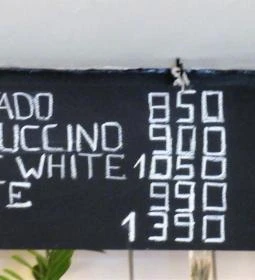 ADO 850
UCCINO 900
T WHITE 1050
TE 990
1390